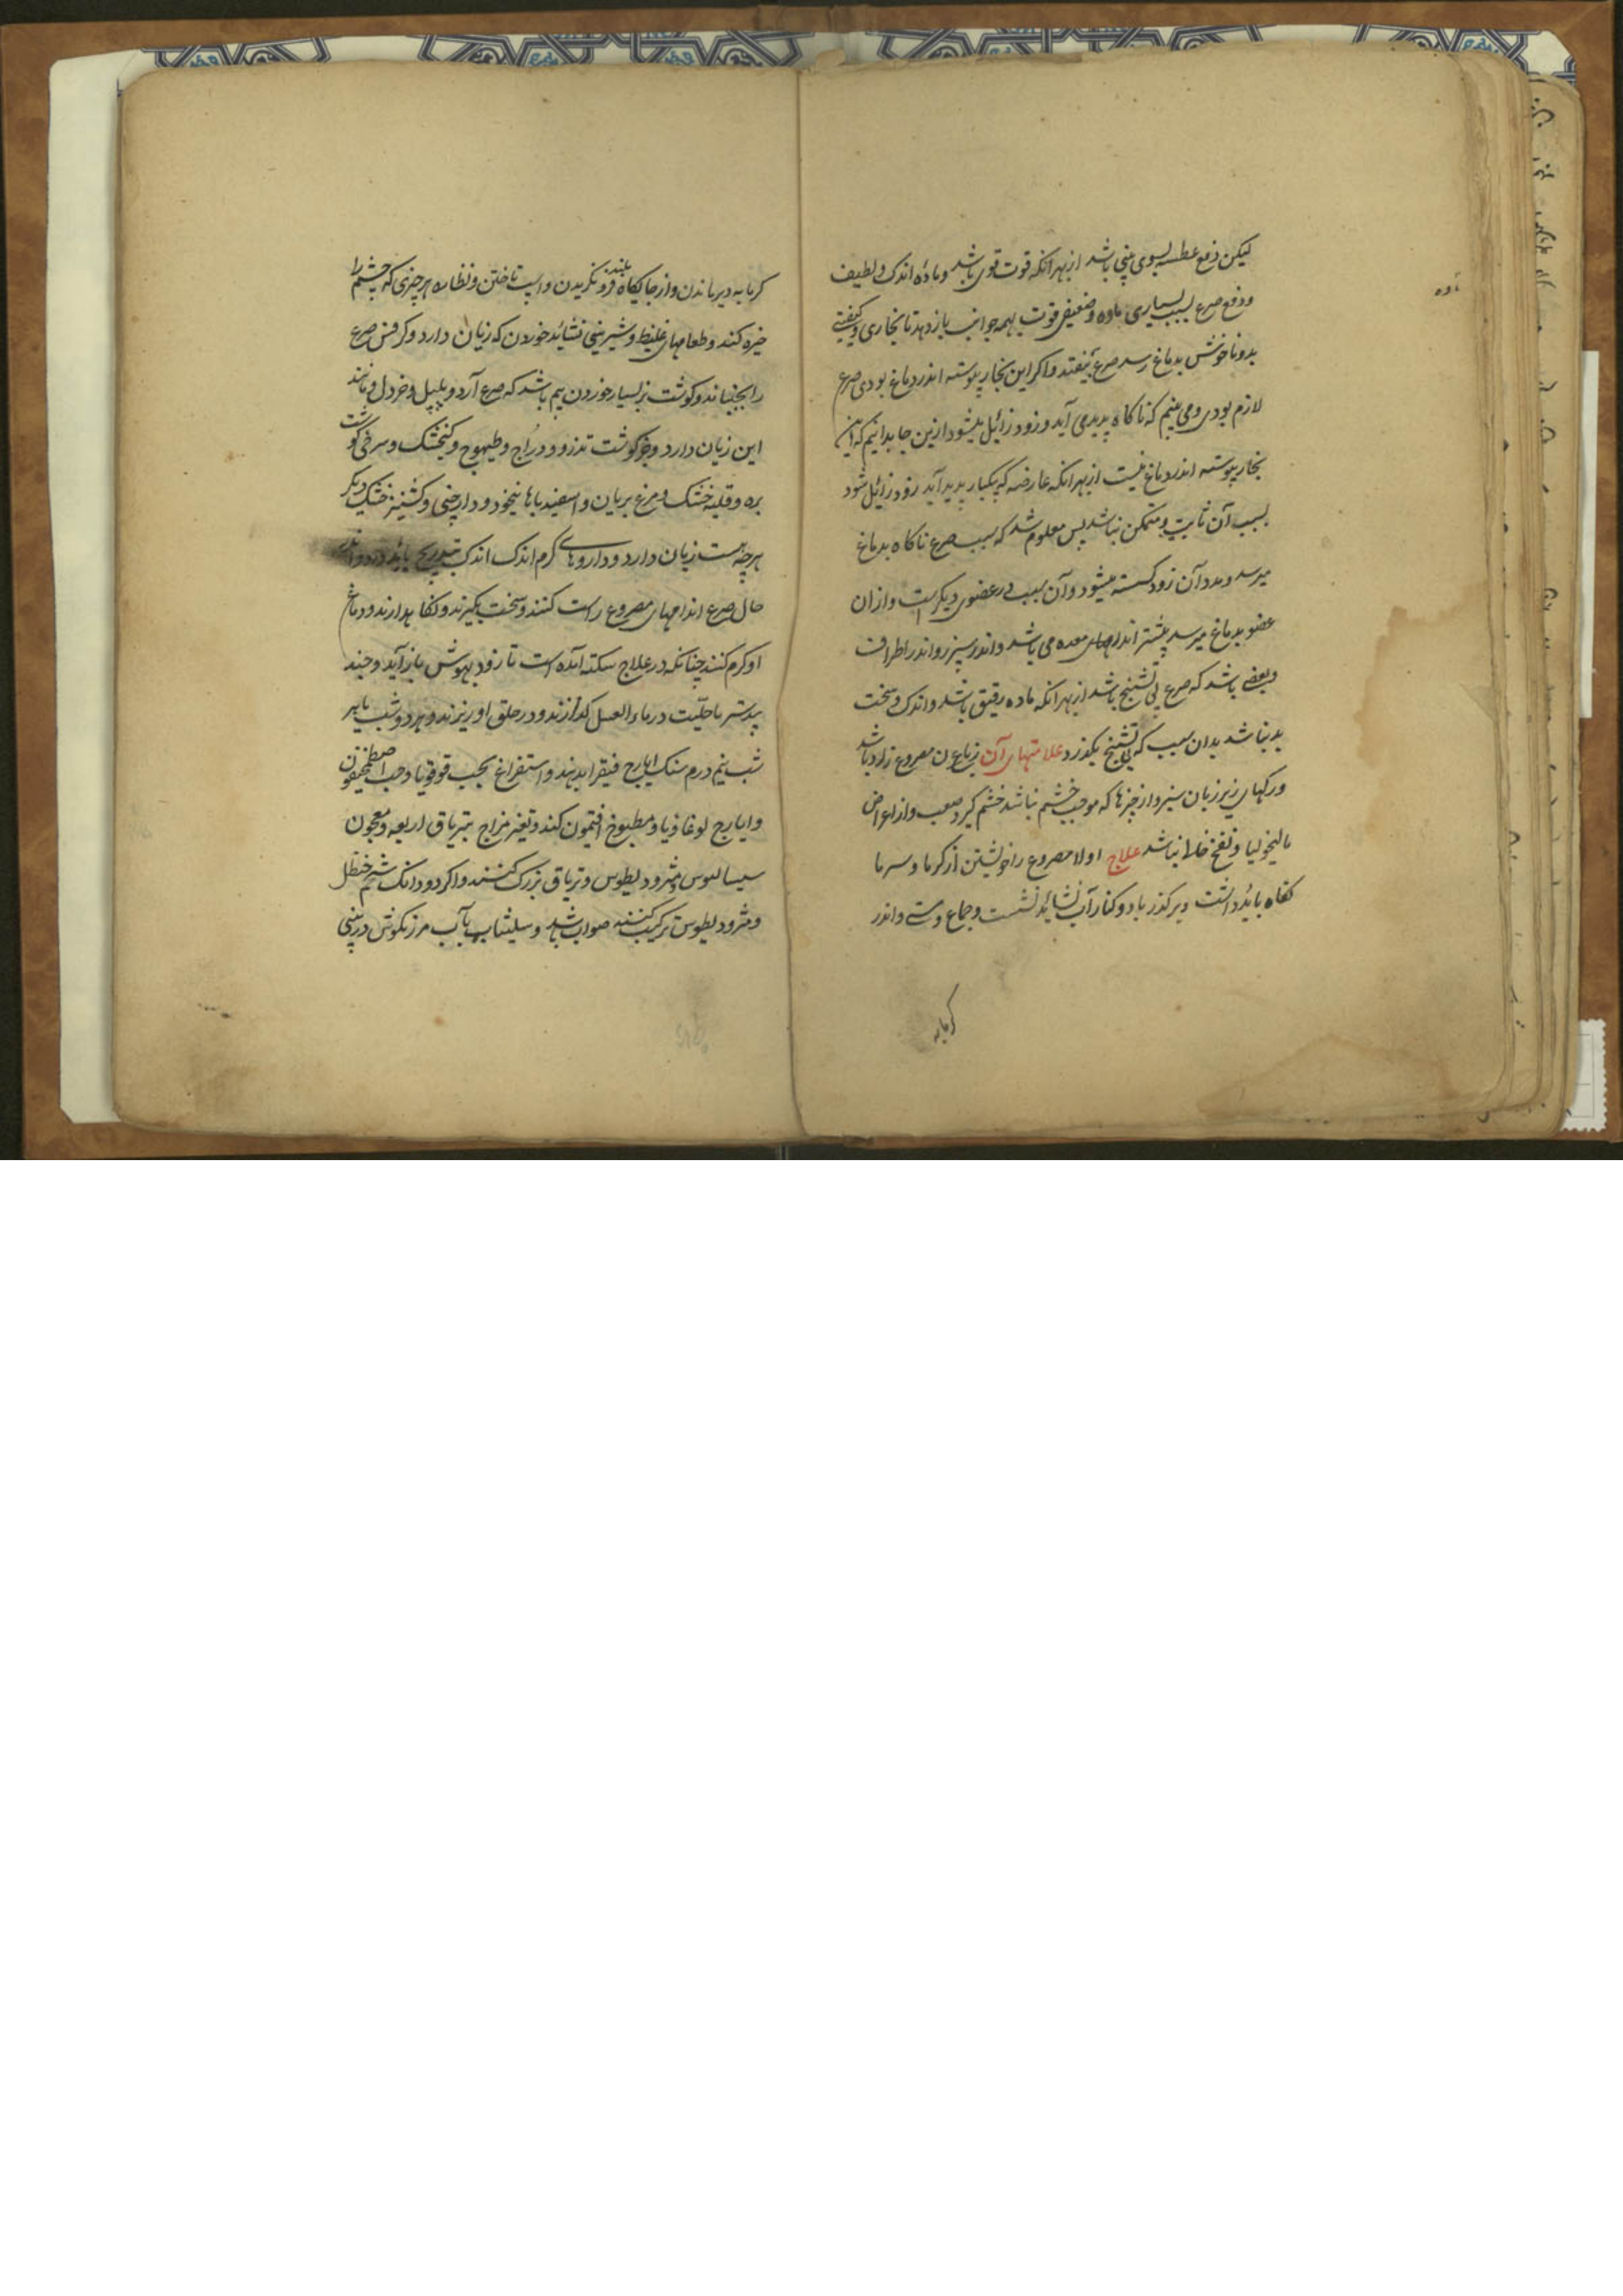 لیکن دفع عطسه بسوی بینی باشد از بهر آنکه قوت قوی باشد و مادّه اندک و لطیف
و دفع صرع بسبب بسیاری ماده و ضعیفی قوت بهمه جوانب باز دهد تا بخاری و کیفیتی
بد و ناخوش بدماغ رسد صرع بیفتد و اکر این بخار پیوسته اندر دماغ بودی صرع
لازم بودی و می بینیم که ناکاه پدید می آید و زود زائیل میشود ازین جا بدانیم که این
بخار پیوسته اندر دماغ نیست از بهر آنکه عارضه که یکبار پدید آید زود زائیل شود
بسبب آن ثابت و متمکن نباشد پس معلوم شد که سبب صرع ناکاه بدماغ
میرسد و مدد آن زود کسسته میشود و آن سبب در عضوی دیکر است و ازان
عضو بدماغ میرسد بیشتر اندر معده می باشد و اندر سپرز و اندر اطراف
و بعضی باشد که صرع بی تشنج باشد از بهر آنکه ماده رقیق باشد و اندک و سخت
بد نباشد بدان سبب که بی تشنج بکذرد علامتهای آن زباعون مصروع زرد باشد
و رکهای زیر زبان سبز و از چیزها که موجب خشم نباشد خشم کیرد صعب و از اعراض
مالیخولیا و نفخ خالی نباشد علاج اولا مصروع را خویشتن از کرما و سرما
نکاه بائد داشت و بر کذر باد و کنار آب نشائد نشست و جماع و مستی و اندر
کرمابه
کرمابه دیر ماندن و از جایکاه بلند فرو نکریدن و اسپ تاختن و نظاره هر چیزی که چشم را
خیره کند و طعامهای غلیظ و شیرینی نشائد خوردن که زیان دارد و کرفس صرع
را بجنباند و کوشت بز بسیار خوردن بیم باشد که صرع آرد و پلپل و خردل و مانند
این زیان دارد و جز کوشت تذرو و درّاج و طیهوج و کنجشک و سرخی کوشت
بره و قلیه خشک و مرغ بریان و اسفیدباها بنخود و دارچینی و کشنیز خشک دیکر
هرچه هست زیان دارد و داروهای کرم اندک اندک بتدریج بائد داد و اندر
حال صرع اندامهای مصروع راست کنند و سخت بکیرند و نکاه دارند و دماغ
او کرم کنند چنانکه در علاج سکته آمده است تا زود بهوش باز آید و جند
بیدستر با حلتیت در ماء العسل کدازند و در حلق او ریزند و هر دو شب یا بر
شب نیم درم سنک ایارج فیقرا بدهند و استفراغ بحب قوقویا و حب اصطمحیقون
و ایارج لوغاذیا و مطبوخ افتیمون کند و تغیر مزاج بتریاق اربعه و معجون
سیسالیوس و مثرودیطوس و تریاق بزرک کنند و اکر دو دانک شحم حنظل
و مثرودیطوس ترکیب کنند صواب باشد و سلیثا بآب مرزنکوش در بینی